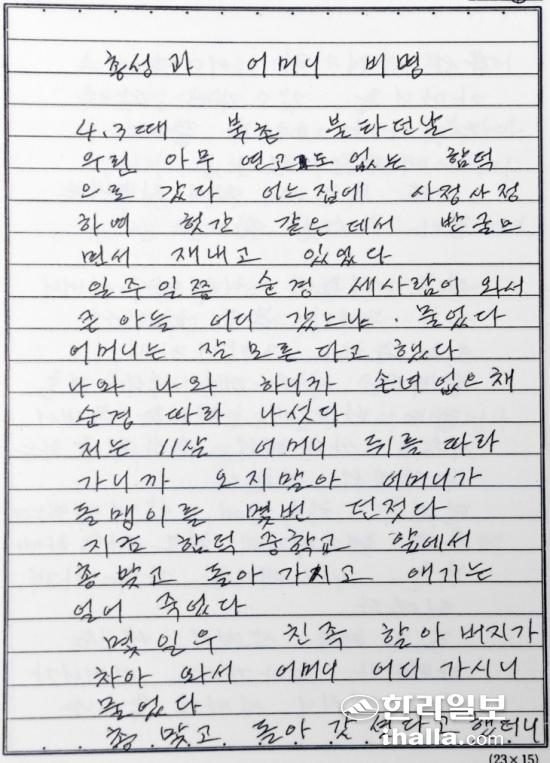 총성과 어머니 비명
4.3때 북촌 불타던날
의린 아무 연고도 없는 함덕
으로 갔다 어느집에 사정사정
하며 헛간 같은 데서 받굴므
면서 재내고 있었다
일주일쯤 순경 세사람이 와서
큰아늘 어디 갔느냐. 물었다
어머니는 잘 모른다고 했다
나와 나와 하니까 손녀 없으채
순경 따라 나섯다
저는 11살 어머니 뒤를 따라
가니까 오지말아 어머니가
돌맹이를 몇번 던젓다
지금 함덕 중학교 앞에서
총 맞고 돌아가시고 애기는
얼어 죽었다
몇일우 친족 할아버지가
차아 와서 어머니 어디 가시니
물었다
총 맞고 돌아 갓셨다고 했더니
한라일보
ihalla.com
(23×15)